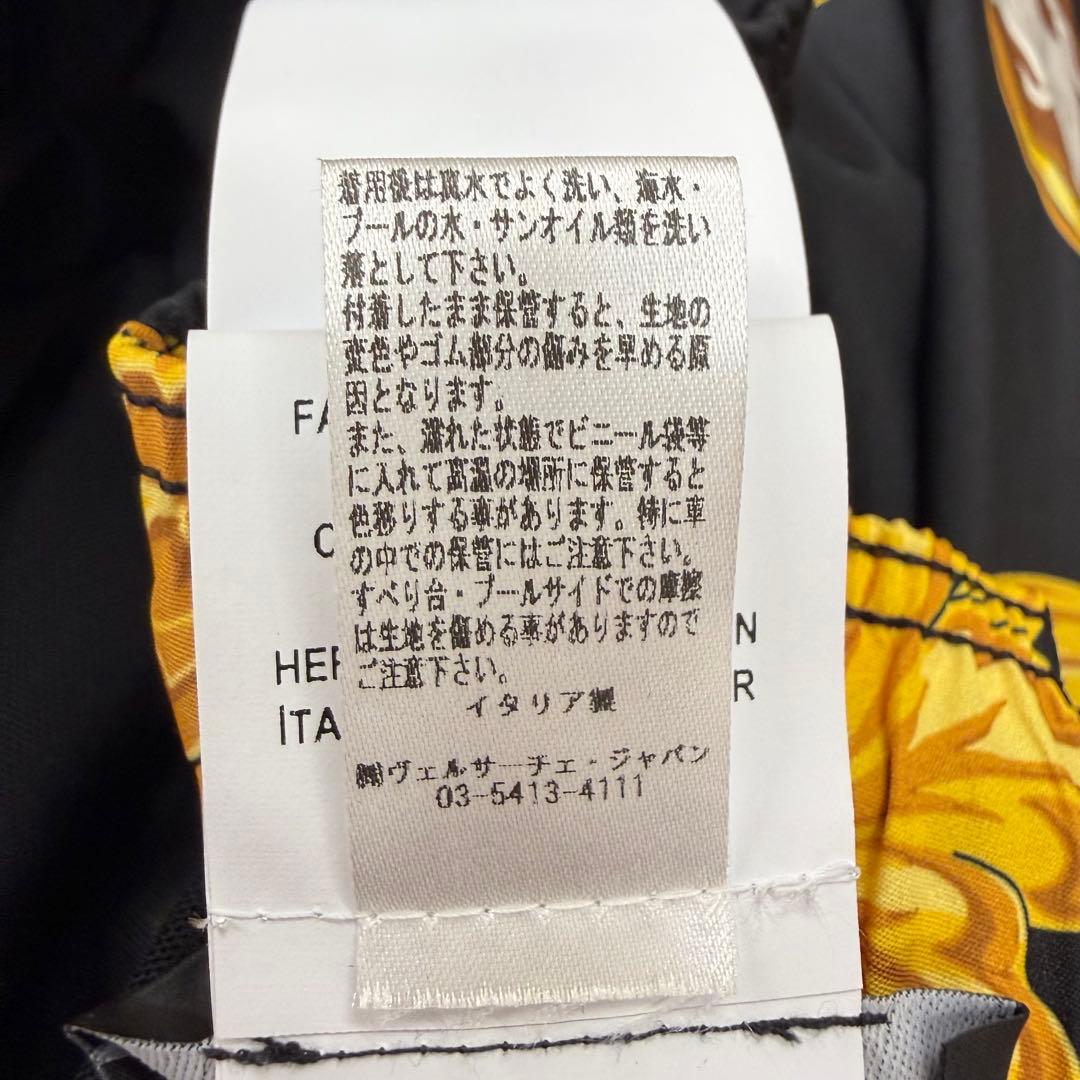 着用後は真水でよく洗い、海水・
プールの水・サンオイル類を洗い
落として下さい。
付着したまま保管すると、生地の
変色やゴム部分の傷みを早める原
因となります。
また、濡れた状態でビニール袋等
に入れて高温の場所に保管すると
色移りする事があります。特に車
の中での保管にはご注意下さい。
すべり台・プールサイドでの摩擦
は生地を傷める事がありますので
ご注意下さい。
イタリア製
㈱ヴェルサーチェ・ジャパン
03-5413-4111
FA
HER
N
İTA
R